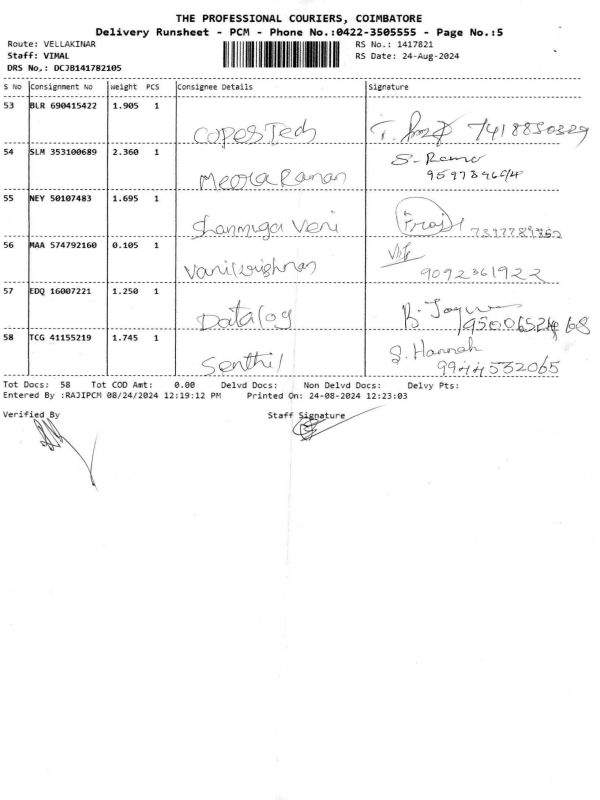 THE PROFESSIONAL COURIERS, COIMBATORE
Delivery Runsheet - PCM - Phone No.:0422-3505555 - Page No.:5
Route: VELLAKINAR RS No.: 1417821
Staff: VIMAL RS Date: 24-Aug-2024
DRS No.: DCJB141782105
S No Consignment No Weight PCS Consignee Details Signature
53 BLR 690415422 1.905 1
54 SLM 353100689 2.360 1 S. Rama
Meera Raman
55 NEY 50107483 1.695 1
Shanmuga Veni
56 MAA 574792160 0.105 1
Vanikrishnan 9092361922
57 EDQ 16007221 1.250 1
Datalog
58 TCG 41155219 1.745 1 S. Hannah
Senthil 9944532065
Tot Docs: 58 Tot COD Amt: 0.00 Delvd Docs: Non Delvd Docs: Delvy Pts:
Entered By :RAJIPCM 08/24/2024 12:19:12 PM Printed On: 24-08-2024 12:23:03
Verified By Staff Signature